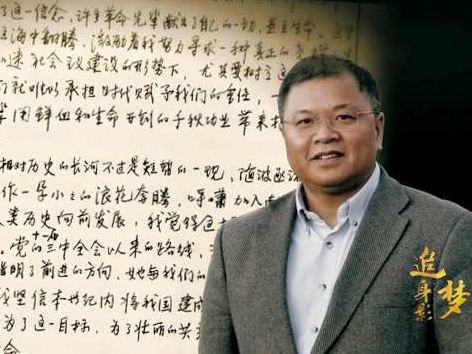 了这一信念，许多革命先辈献出了自己的一切，甚至生命。这个
海中翻腾，激励着我努力寻求一种真正的
速社会议建设的形势下，尤其要树立这
们就难以承担时代赋予我们的重任，一
用鲜血和生命开创的千秋功业葬来
相对历史的长河不过是短暂的一现，随波
作一朵小小的浪花奔腾，呼啸加入
人类历史向前发展，我觉得这
党的十一届三中全会以来的路线，
指明了前进的方向，她与我们的
我坚信本世纪内将我国建成
为了这一目标，为了壮丽的共
命
追梦
身影